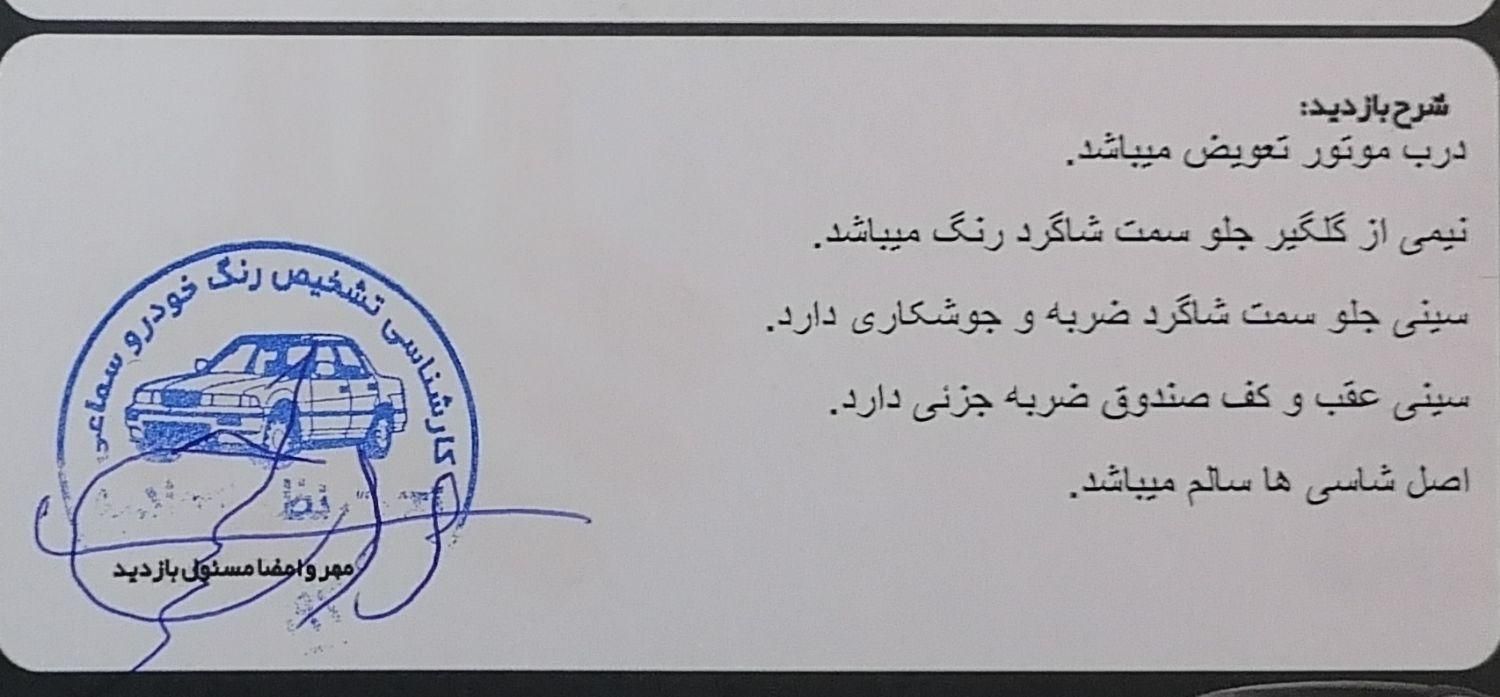 شرح بازدید:
درب موتور تعویض میباشد.
نیمی از گلگیر جلو سمت شاگرد رنگ میباشد.
سینی جلو سمت شاگرد ضربه و جوشکاری دارد.
سینی عقب و کف صندوق ضربه جزئی دارد.
اصل شاسی ها سالم میباشد.
کارشناسی تشخیص رنگ خودرو سماعی
مهر و امضا مسئول بازدید